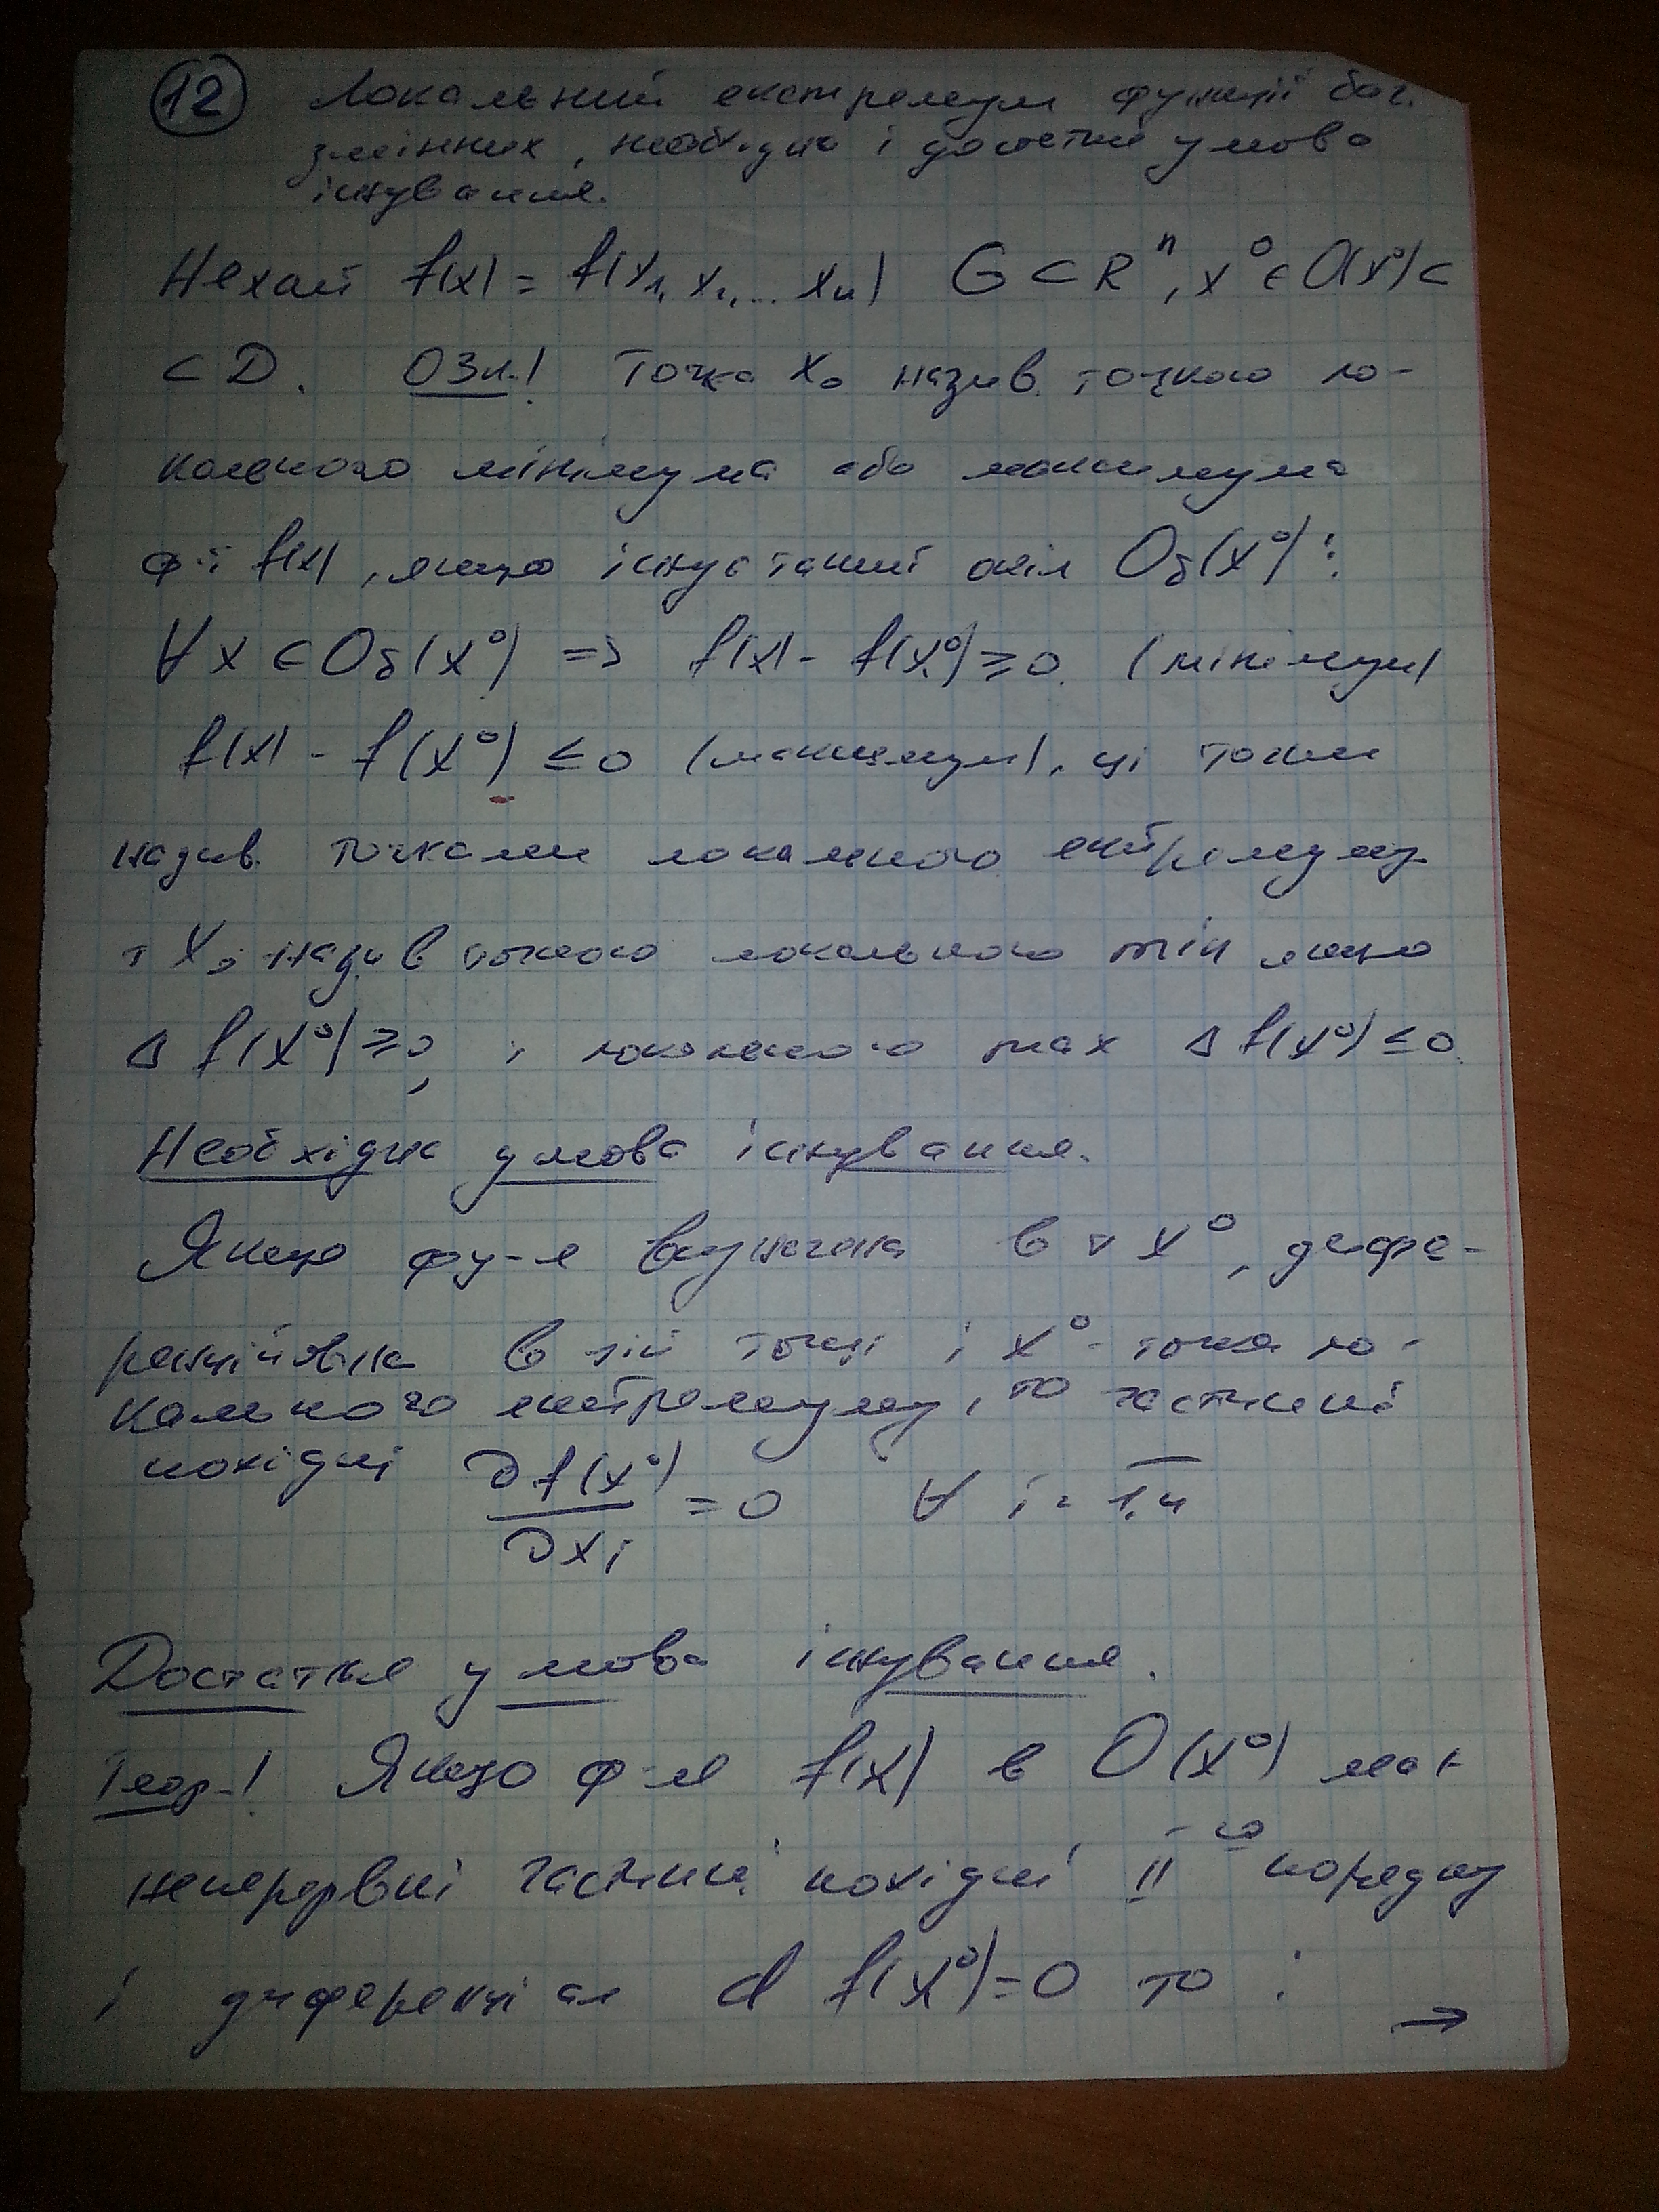 12 Локальний екстремум функції баг.
змінних, необхідна і достатня умова
існування.
Нехай f(x) = f(x₁, x₂, ... xₙ) G ⊂ Rⁿ, x⁰ ∈ O(x⁰) ⊂
⊂ D. Озн.! Точка x₀ назив. точкою ло-
кального мінімума або максимума
ф-ї f(x), якщо існує такий окіл Oδ(x⁰):
∀ x ⊂ Oδ(x⁰) => f(x) - f(x⁰) ≥ 0. (мінімум)
f(x) - f(x⁰) ≤ 0 (максимум), ці точки
назив. точками локального екстремуму
т x₀ назив точкою локального min якщо
Δ f(x⁰) ≥ 0, і локального max Δ f(x⁰) ≤ 0.
Необхідна умова існування.
Якщо фу-я в т x⁰, дифе-
ренційовна в цій точці і x⁰ - точка ло-
кального екстремуму, то частинні
похідні ∂f(x⁰)/∂xᵢ = 0 ∀ i = 1,n
Достатня умова існування.
Теор-! Якщо ф-я f(x) в O(x⁰) має
неперервні частинні похідні II го порядку
і диференціал d f(x⁰) = 0 то :
→